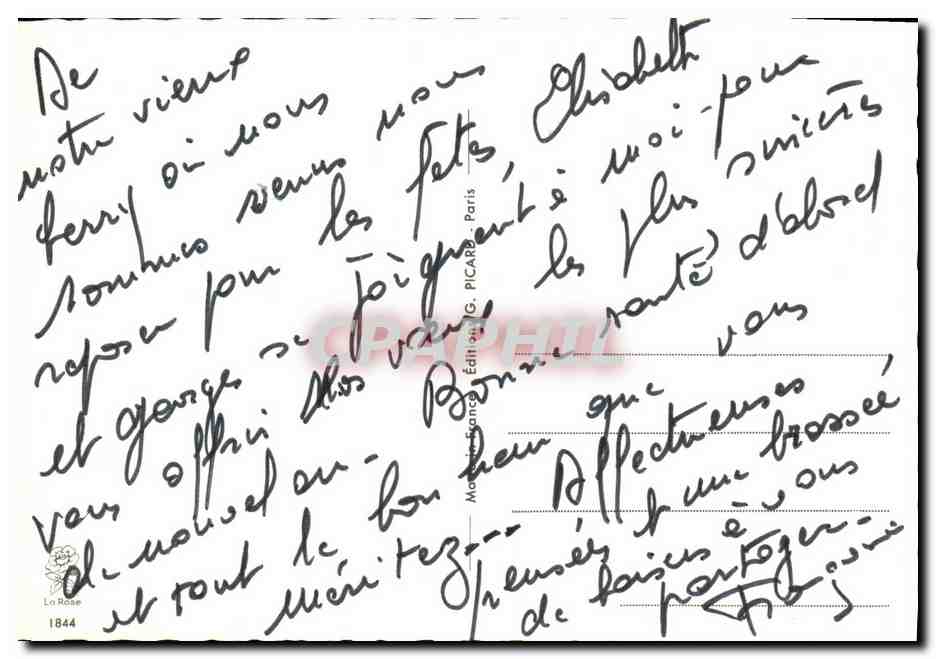 De
notre vieux
Berry où nous
sommes venus nous
reposer pour les fêtes, Elisabeth
et Georges se joignent à moi pour
vous offrir nos vœux les plus sincères
de nouvel an - Bonne santé d'abord
et tout le bonheur que vous
méritez --- Affectueuses
pensées et une brassée
de baisers à vous
partager -
Made in France - Éditions G. PICARD - Paris
CPAPHIL
La Rose
1844